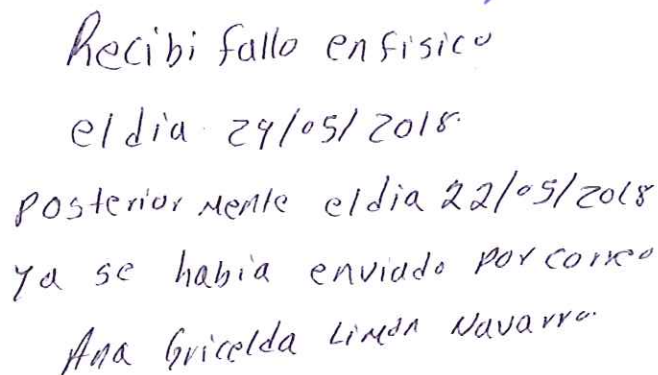 Recibi fallo en fisico
el dia 29/05/2018.
posteriormente el dia 22/05/2018
ya se habia enviado por correo
Ana Gricelda Limón Navarro.